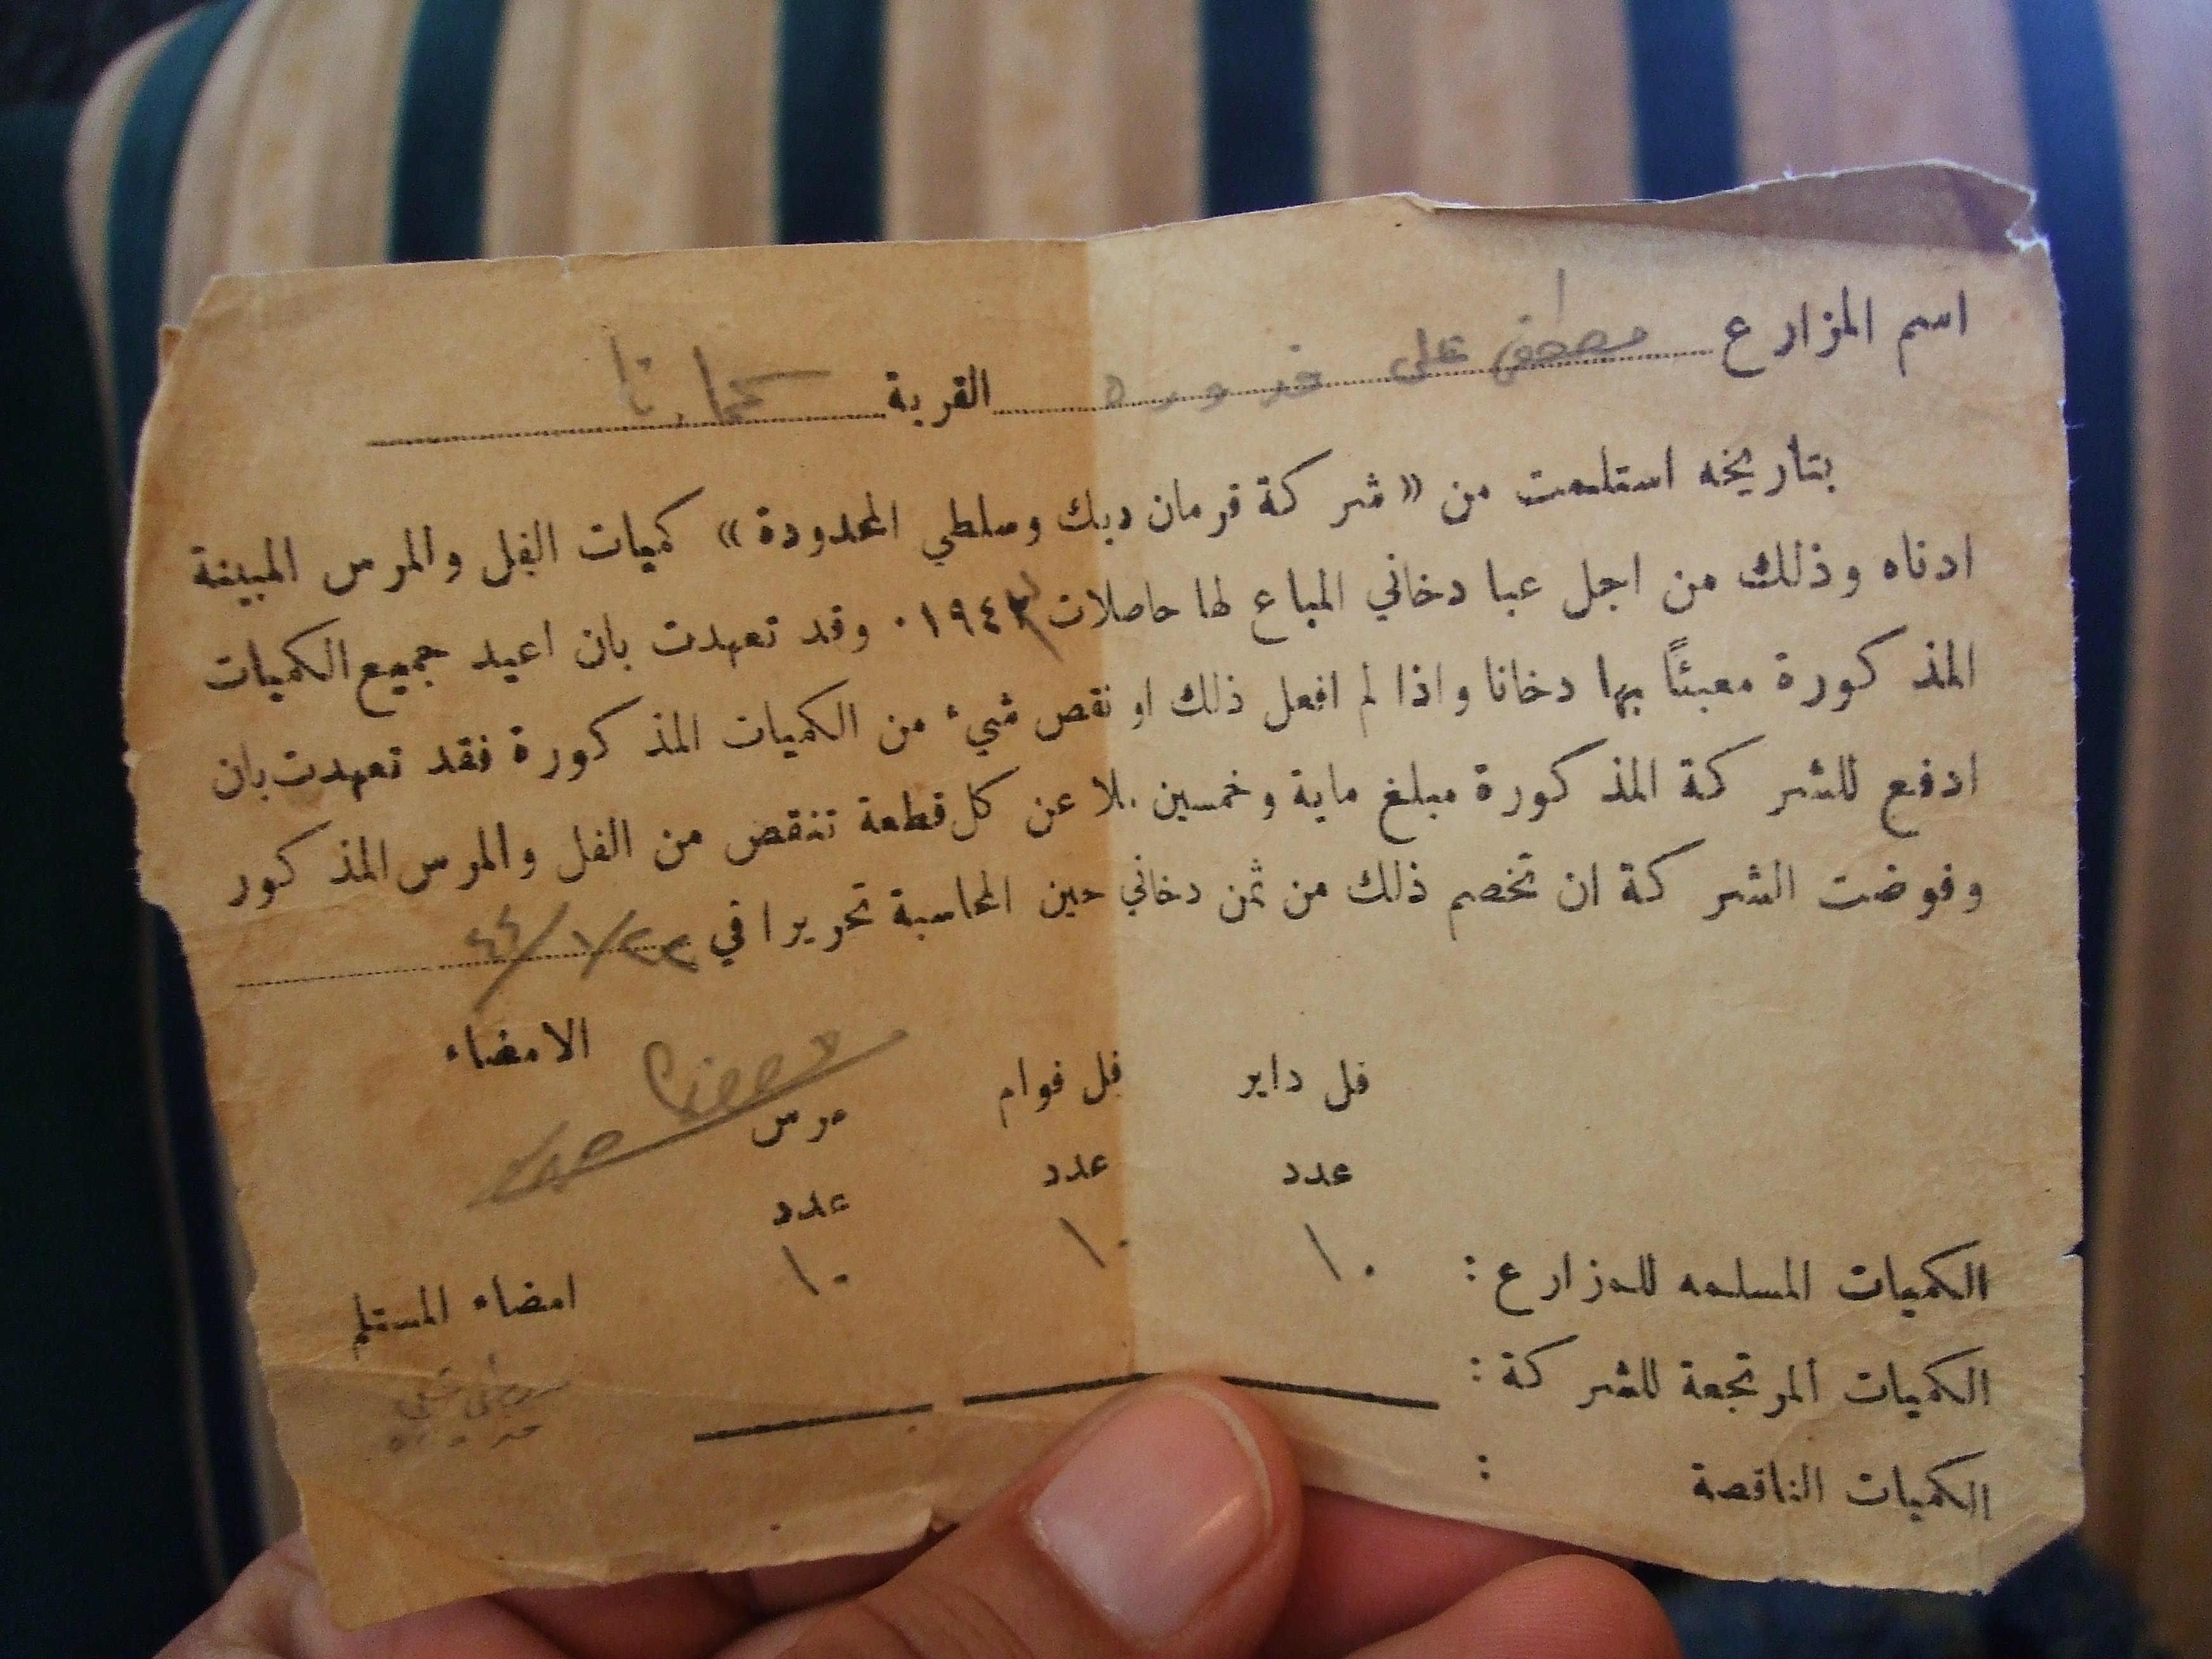 اسم المزارع مصطفى علي قدوره القرية سحماتا
بتاريخه استلمت من «شركة قرمان ديك وسلطي المحدودة» كميات الفل والمرس المبينة
ادناه وذلك من اجل عبا دخاني المباع لها حاصلات ١٩٤٣٠ وقد تعهدت بان اعيد جميع الكميات
المذكورة معبئاً بها دخانا واذا لم افعل ذلك او نقص شيء من الكميات المذكورة فقد تعهدت بان
ادفع للشركة المذكورة مبلغ ماية وخمسين .لا عن كل قطعة تنقص من الفل والمرس المذكور
وفوضت الشركة ان تخصم ذلك من ثمن دخاني حين المحاسبة تحريرا في ٢٢/١/٤٤
فل داير فل قوام مرس الامضاء
عدد عدد عدد
الكميات المسلمه للمزارع : ١٠ ١٠ ١٠ امضاء المستلم
الكميات المرتجعة للشركة :
الكميات الناقصة :